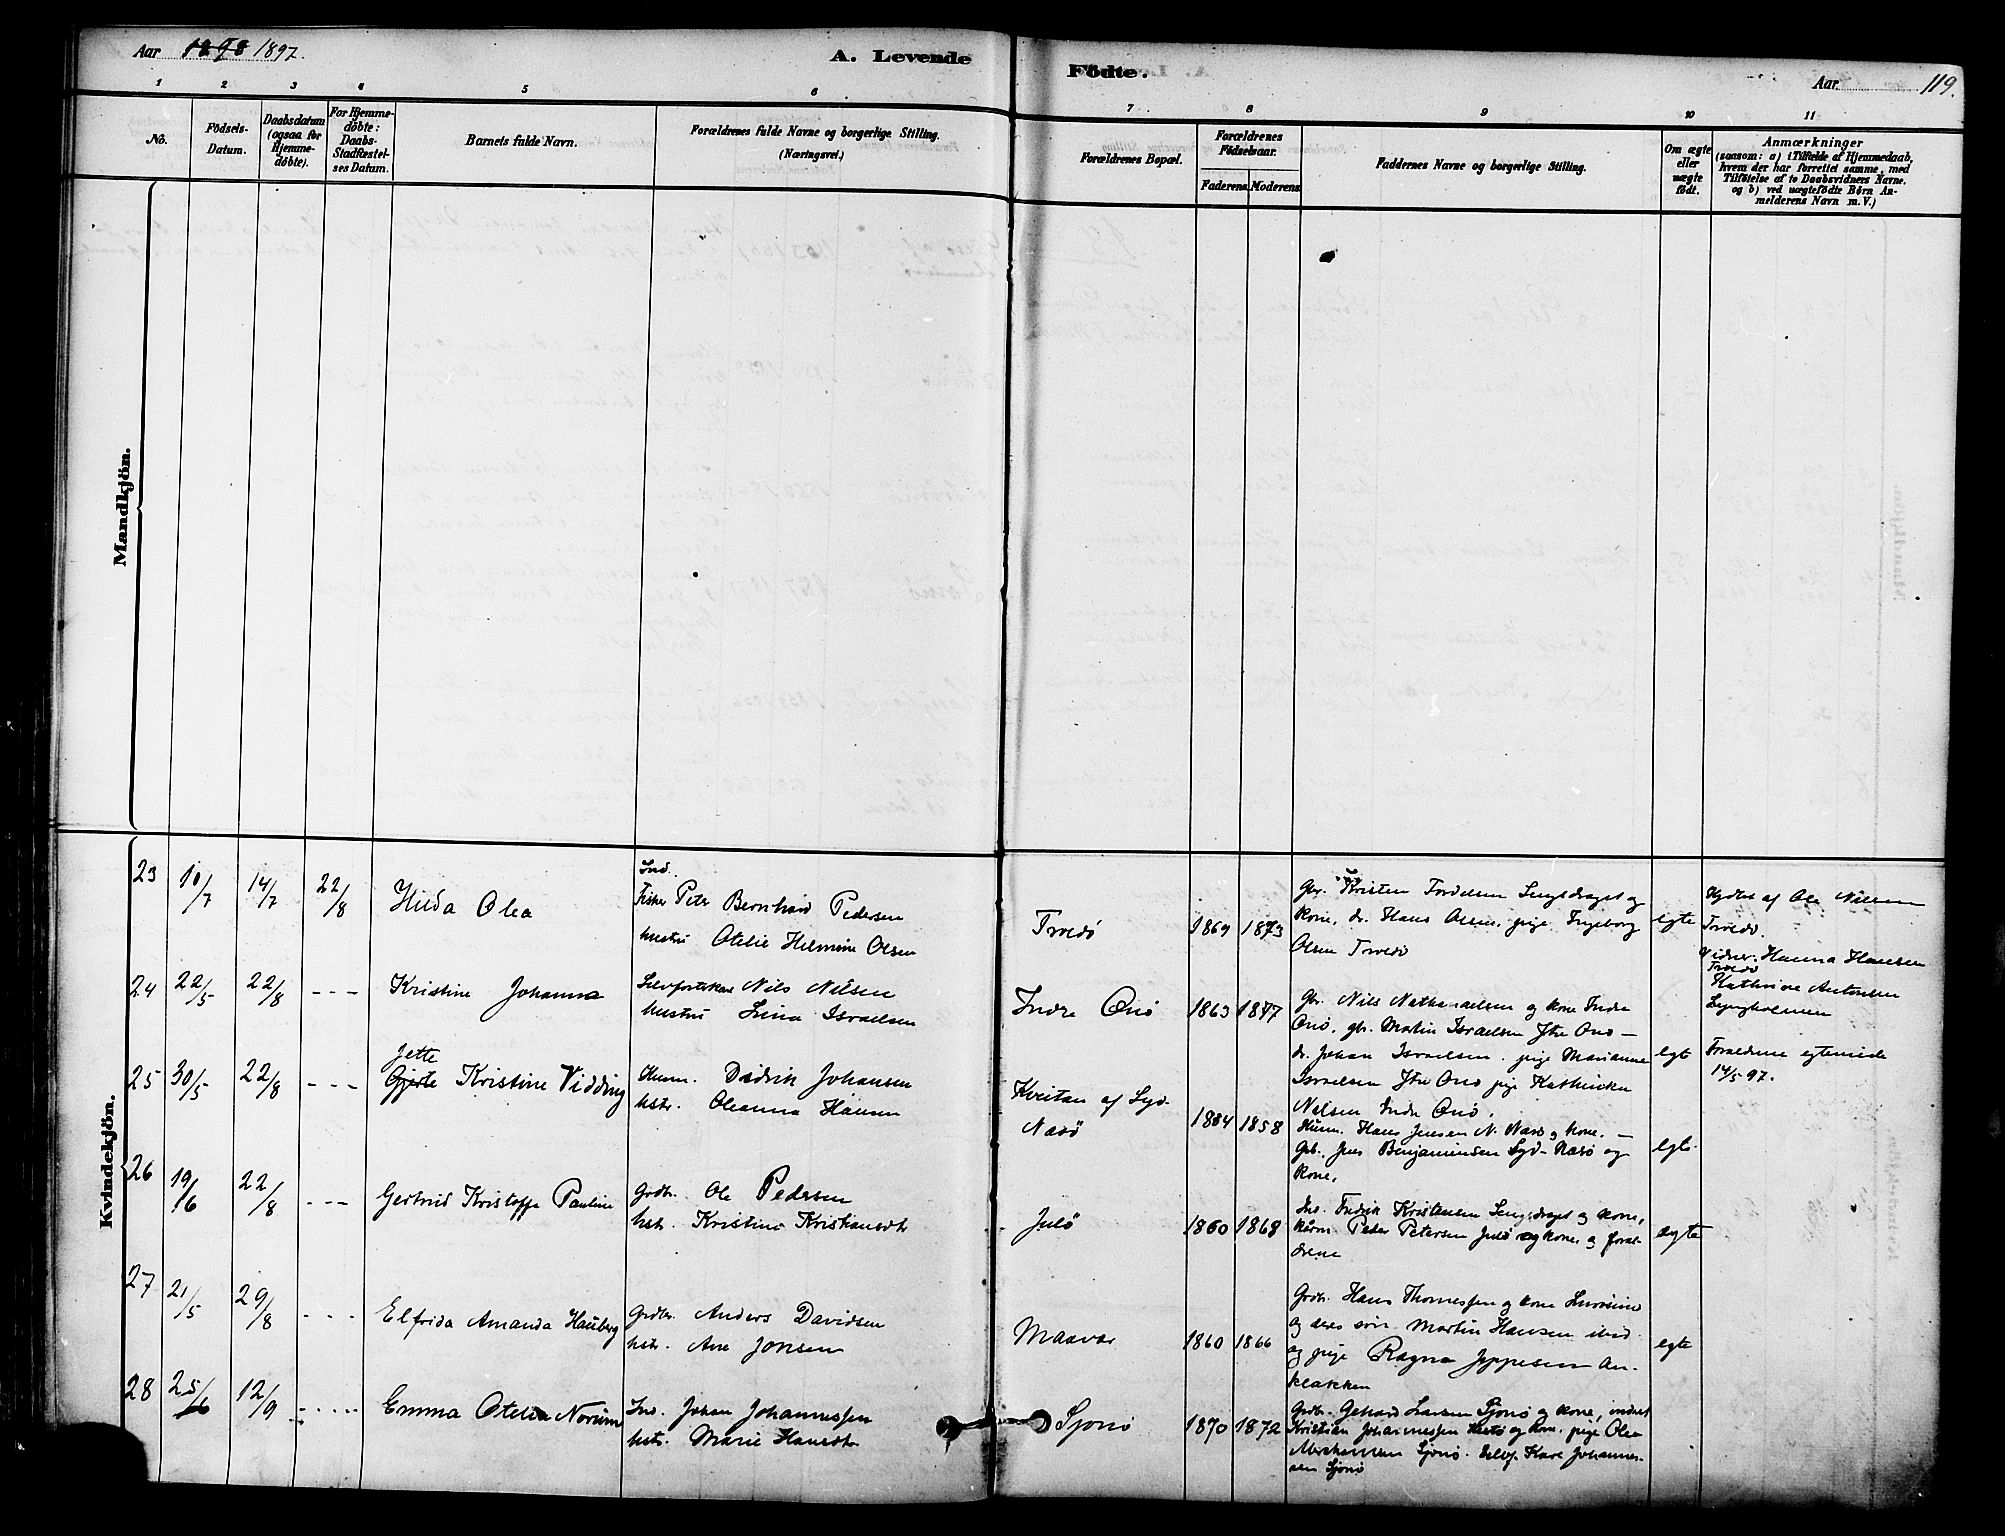 Aar 1898 1897.
A. Levende
Födte.
Aar 119.
1 2 3 4 5 6 7 8 9 10 11
No.
Födsels-
Datum.
Daabsdatum
(ogsaa for
Hjemme-
döbte).
For Hjemme-
döbte:
Daabs-
Stadfæstel-
ses Datum.
Barnets fulde Navn.
Forældrenes fulde Navne og borgerlige Stilling.
(Næringsvei.)
Forældrenes Bopæl.
Forældrenes
Födselsaar.
Faderens. Moderens.
Faddernes Navne og borgerlige Stilling.
Om ægte
eller
uægte
födt.
Anmærkninger
(saasom: a) i Tilfælde af Hjemmedaab,
hvem der har forrettet samme, med
Tilföielse af to Daabsvidners Navne.
og b) ved uægtefödte Börn An-
melderens Navn m. V.)
Mandkjön.
Kvindekjön.
23 10/7 14/7 22/8 Hilda Olea
Ind.
Fisker Peter Bernhard Pedersen
hustru Otelie Helmine Olsen
Trædö
1869 1873
Kristen Lengsdraget og
kone, Hans Olsen, pige Ingeborg
Olsen Trædö
egte
af Ole Nilsen
Trædö.
Vidner. Hanna Hansen
Trædö
Kathrine Antonsen
24 22/5 22/8 - - - Kristine Johanna
Nils Nilsen
hustru Lina Israelsen
Indre Onö
1863 1877
Gbr. Nils Nathanaelsen og kone Indre
Onö, gb. Martin Israelsen Ytre Onö -
dr. Johan Israelsen. pige Marianne
Israelsen Ytre Onö pige Kathinka
Nilsen Indre Onö.
egt
Forældrene egteviede
14/5 97.
25 30/5 22/8 - - -
Jette
Gjerte Kristine Vidding
Husm. Didrik Johansen
hstr. Oleanna Hansen
Kvitan af Syd-
Næsö
1858
Husm. Hans Jensen N. Næsö og kone. -
Gbr. Jens Benjaminsen Syd-Næsö og
kone.
egte
26 19/6 22/8 - - - Gertrud Kristoffa Pauline
Grdbr. Ole Pedersen
hstr. Kristine Kristiansdtr
Julö
1860 1868
Ind. Fredrik Kristensen Lengsdraget og kone,
Peder Petersen Julö og kone og foræl-
drene
ægte
27 21/5 29/8 - - - Elfrida Amanda Hauberg
Grdbr. Anders Davidsen
hstr. Ane Jonsen
Maavær
1860 1866
Grdbr. Hans Thomessen og kone
og deres sön Martin Hansen ibid.
og pige Ragna Jeppesen An-
klakken
egte
28 25/6 12/9 - - - - - Emma Otelie Norum
Ind. Johan Johannessen
hstr. Marie Hansdtr
Sjonö
1870 1872
Grdbr. Gehard Larsen Sjonö og kone, inderst
Kristian Johannessen og kone, pige Olea
Sjonö. Selvf. Kare Johannes-
sen Sjonö